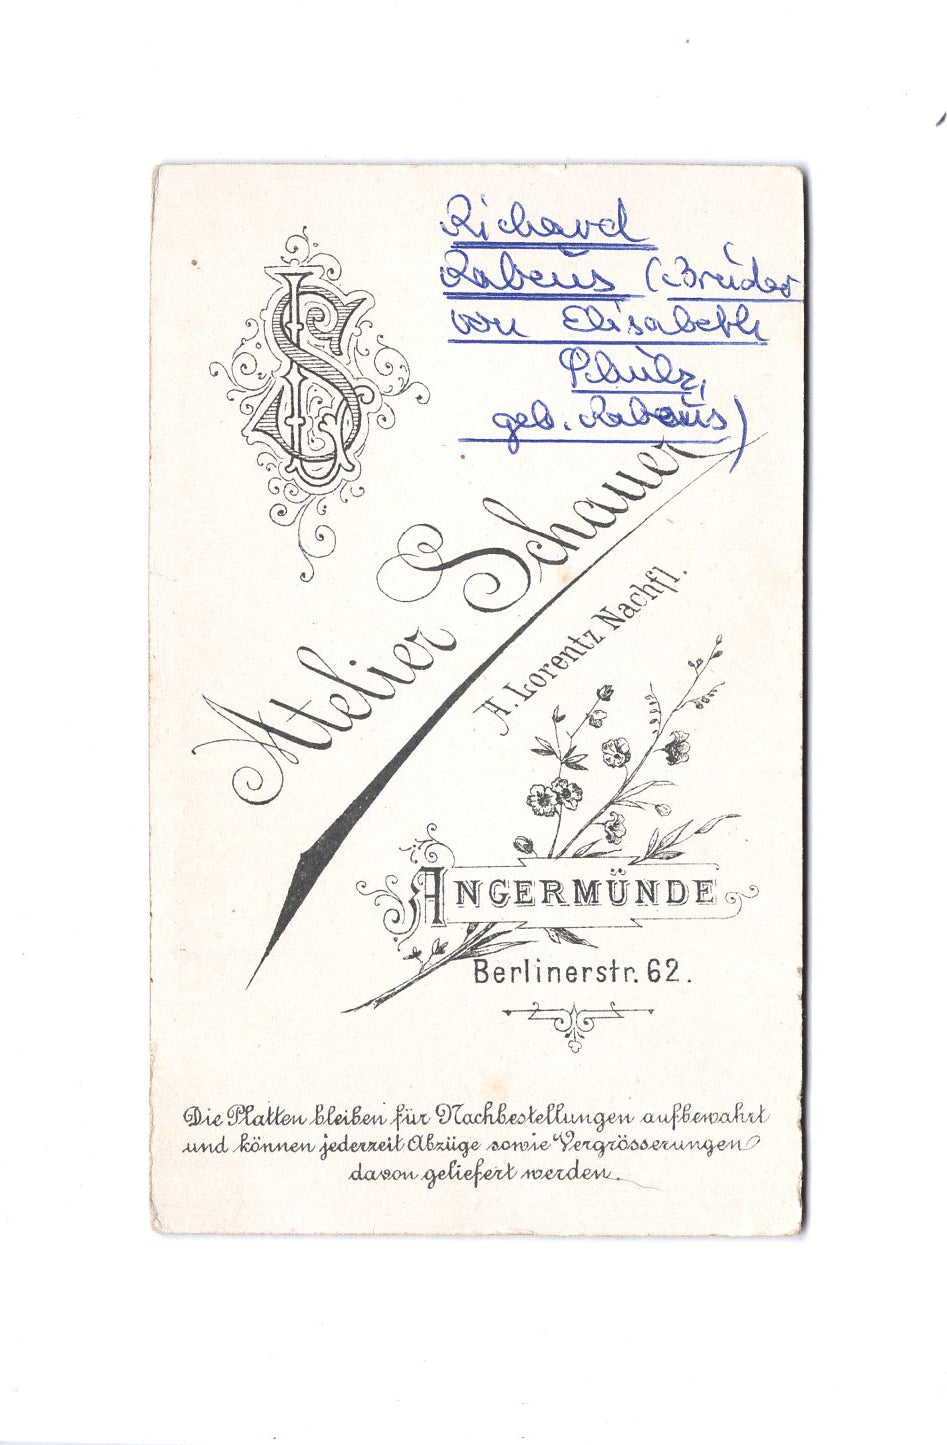 Richard
Rabeus (Bruder
von Elisabeth
Schulz,
geb. Rabeus)
Atelier Schauer
A. Lorentz Nachfl.
ANGERMÜNDE
Berlinerstr. 62.
Die Platten bleiben für Nachbestellungen aufbewahrt
und können jederzeit Abzüge sowie Vergrösserungen
davon geliefert werden.